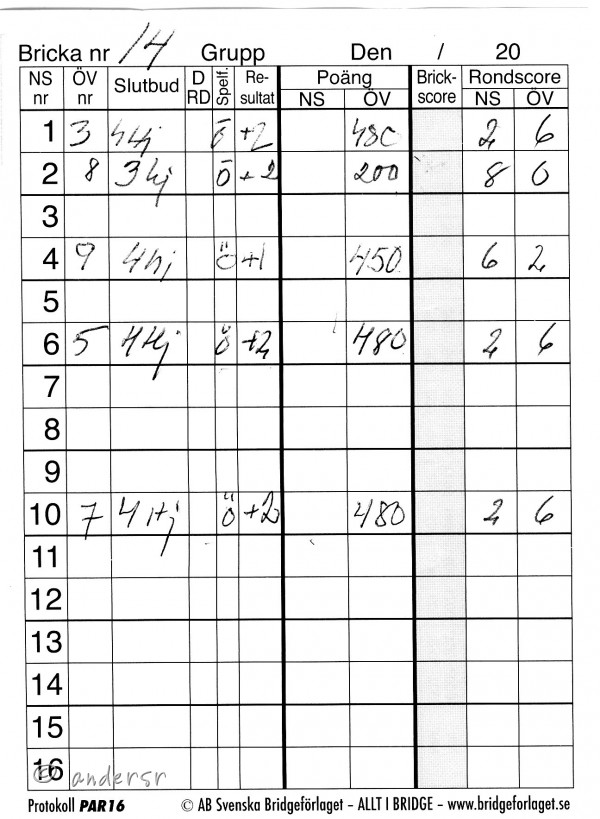 Bricka nr 14 Grupp Den / 20
NS nr ÖV nr Slutbud D RD Spelf. Re-sultat Poäng NS ÖV Brick-score Rondscore NS ÖV
1 3 4Hj ö +2 480 2 6
2 8 3hj ö +2 200 8 0
3
4 9 4hj ö +1 450 6 2
5
6 5 4Hj ö +2 480 2 6
7
8
9
10 7 4Hj ö +2 480 2 6
11
12
13
14
15
16
© andersr
Protokoll PAR16 © AB Svenska Bridgeförlaget – ALLT I BRIDGE – www.bridgeforlaget.se